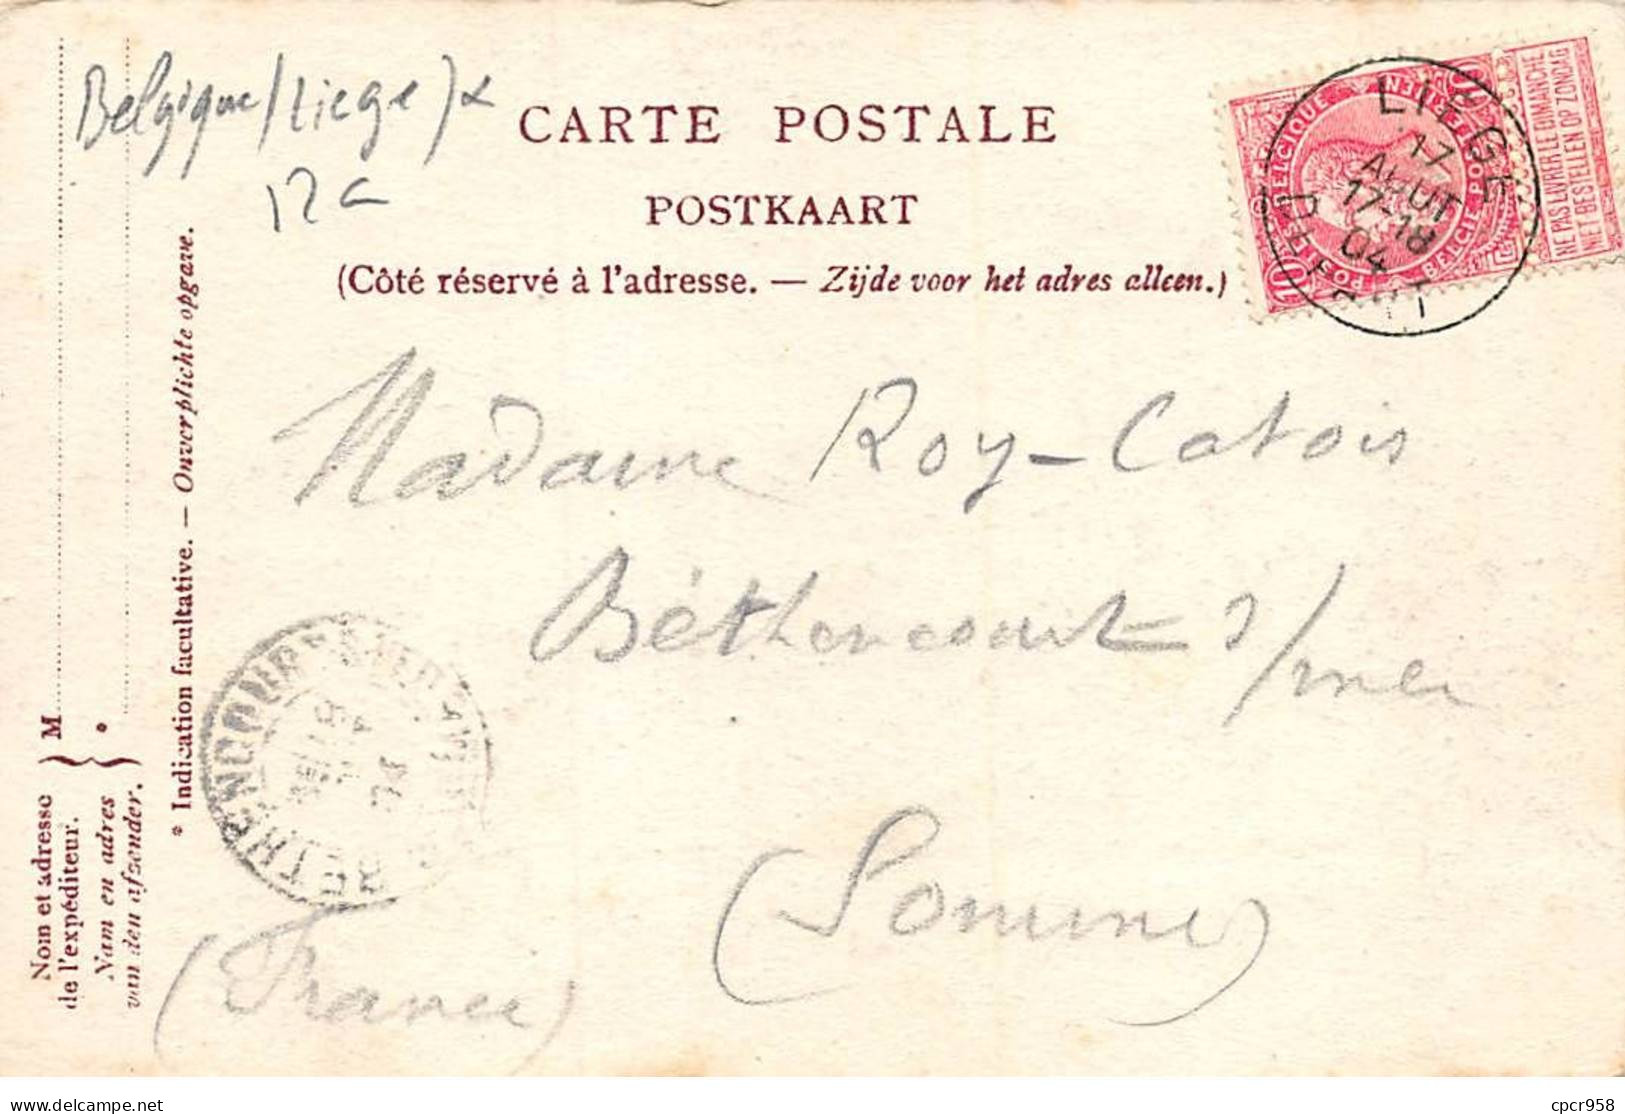 Belgique (Liege) x
12 €
CARTE POSTALE
POSTKAART
(Côté réservé à l'adresse. — Zijde voor het adres alleen.)
BELGIQUE POSTES
BELGIE POSTERIJEN
10
NE PAS LIVRER LE DIMANCHE
NIET BESTELLEN OP ZONDAG
LIEGE
17
AOUT
17-18
04
DEPART
Madame Roy-Catois
Béthencourt s/mer
(Somme)
(France)
BETHENCOURT-SUR-MER
04
M
*
Nom et adresse
de l'expéditeur.
Nam en adres
van den afzender.
* Indication facultative. — Onverplichte opgave.
cpcr958